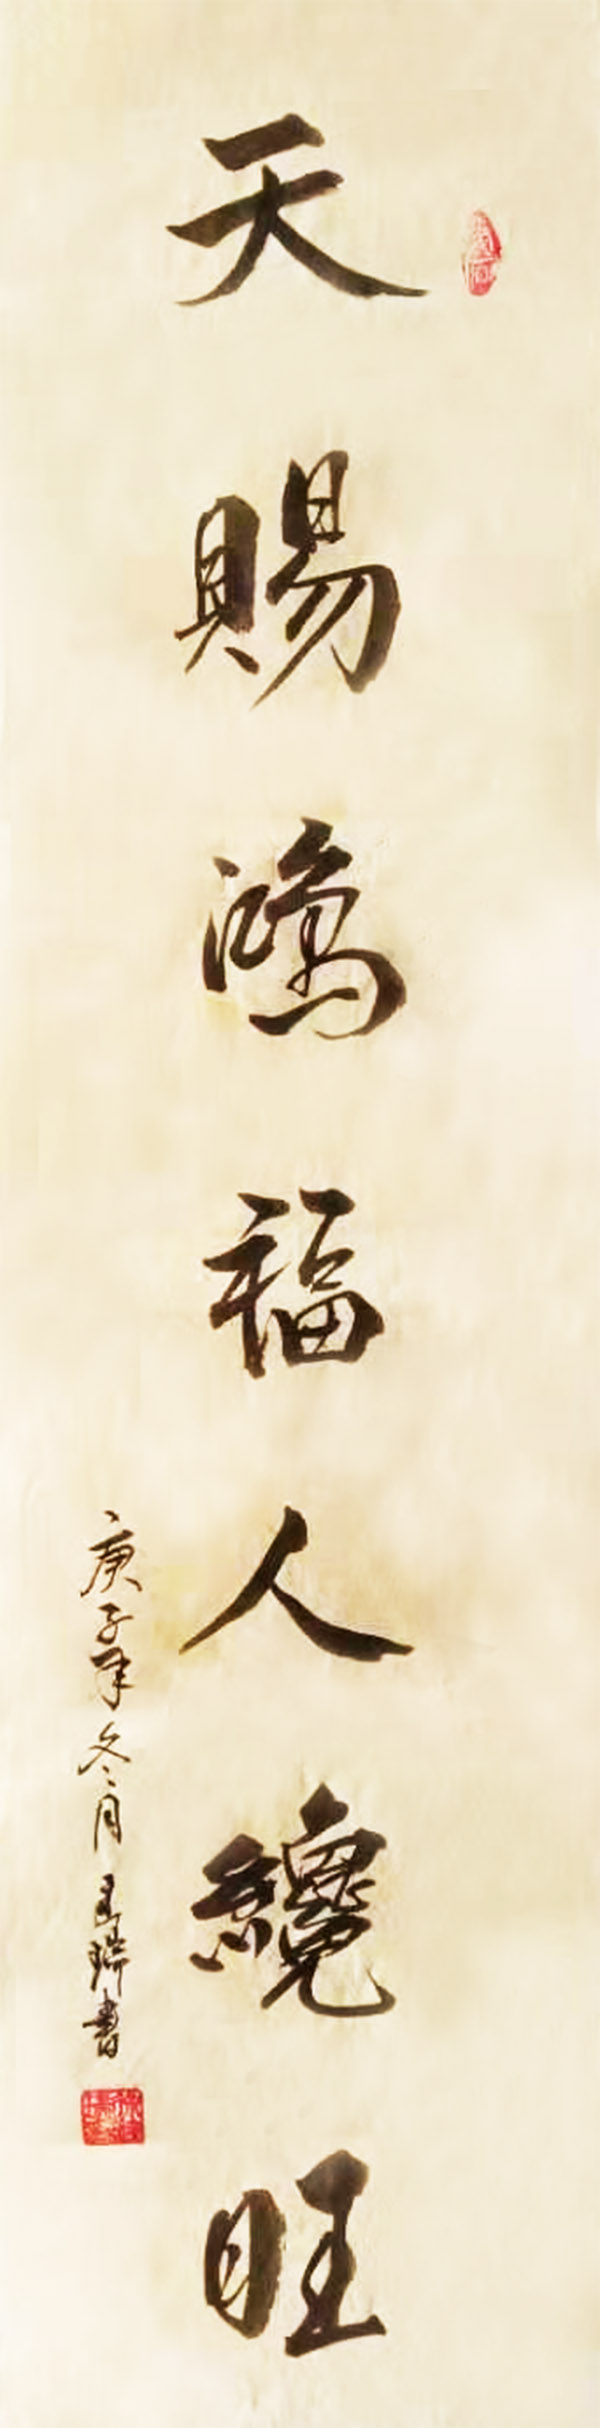 天賜鴻福人纔旺
庚子年冬月 瑞書